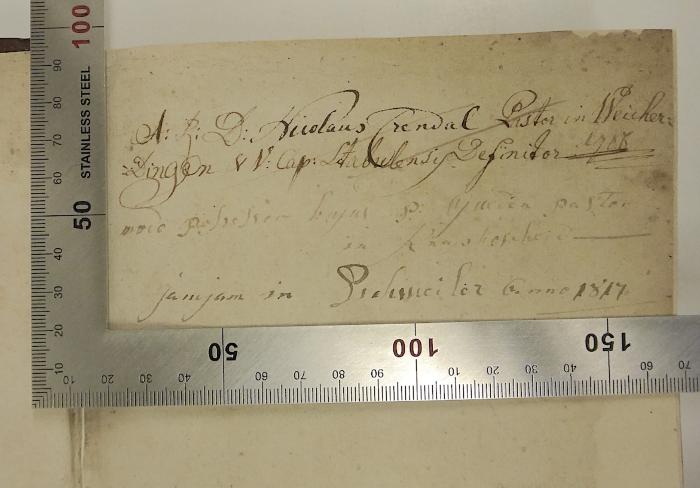 A: R: D: Nicolaus Crendal Pastor in Weicher=
=Dingen & V: Cap: Stabulensis Definitor 1768
modo possessor hujus P: pastor
in
jamjam in Eschweiler Anno 1817
STAINLESS STEEL
10 20 30 40 50 60 70 80 90 100
10 20 30 40 50 60 70 80 90 100 10 20 30 40 150 60 70